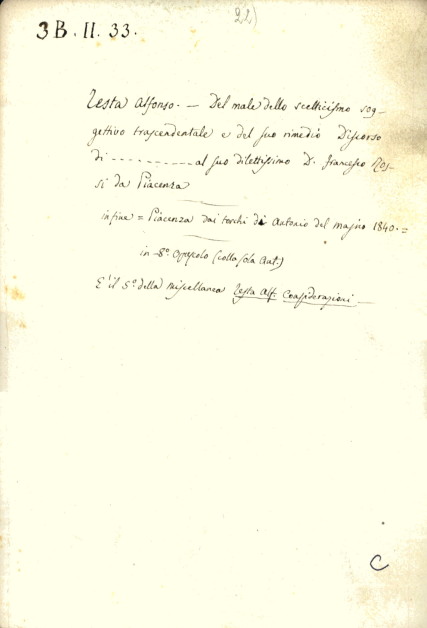 22)
3B. II. 33.
Testa Alfonso. — Del male dello scetticismo sog-
gettivo trascendentale e del suo rimedio Discorso
di - - - - - - - - - - al suo dilettissimo D. Francesco Ros-
si da Piacenza
infine = Piacenza dai torchi di Antonio del majno 1840. =
in 8º. Opuscolo (colla sola ant.)
E' il 5º. della miscellanea Testa Alf. Considerazioni —
C